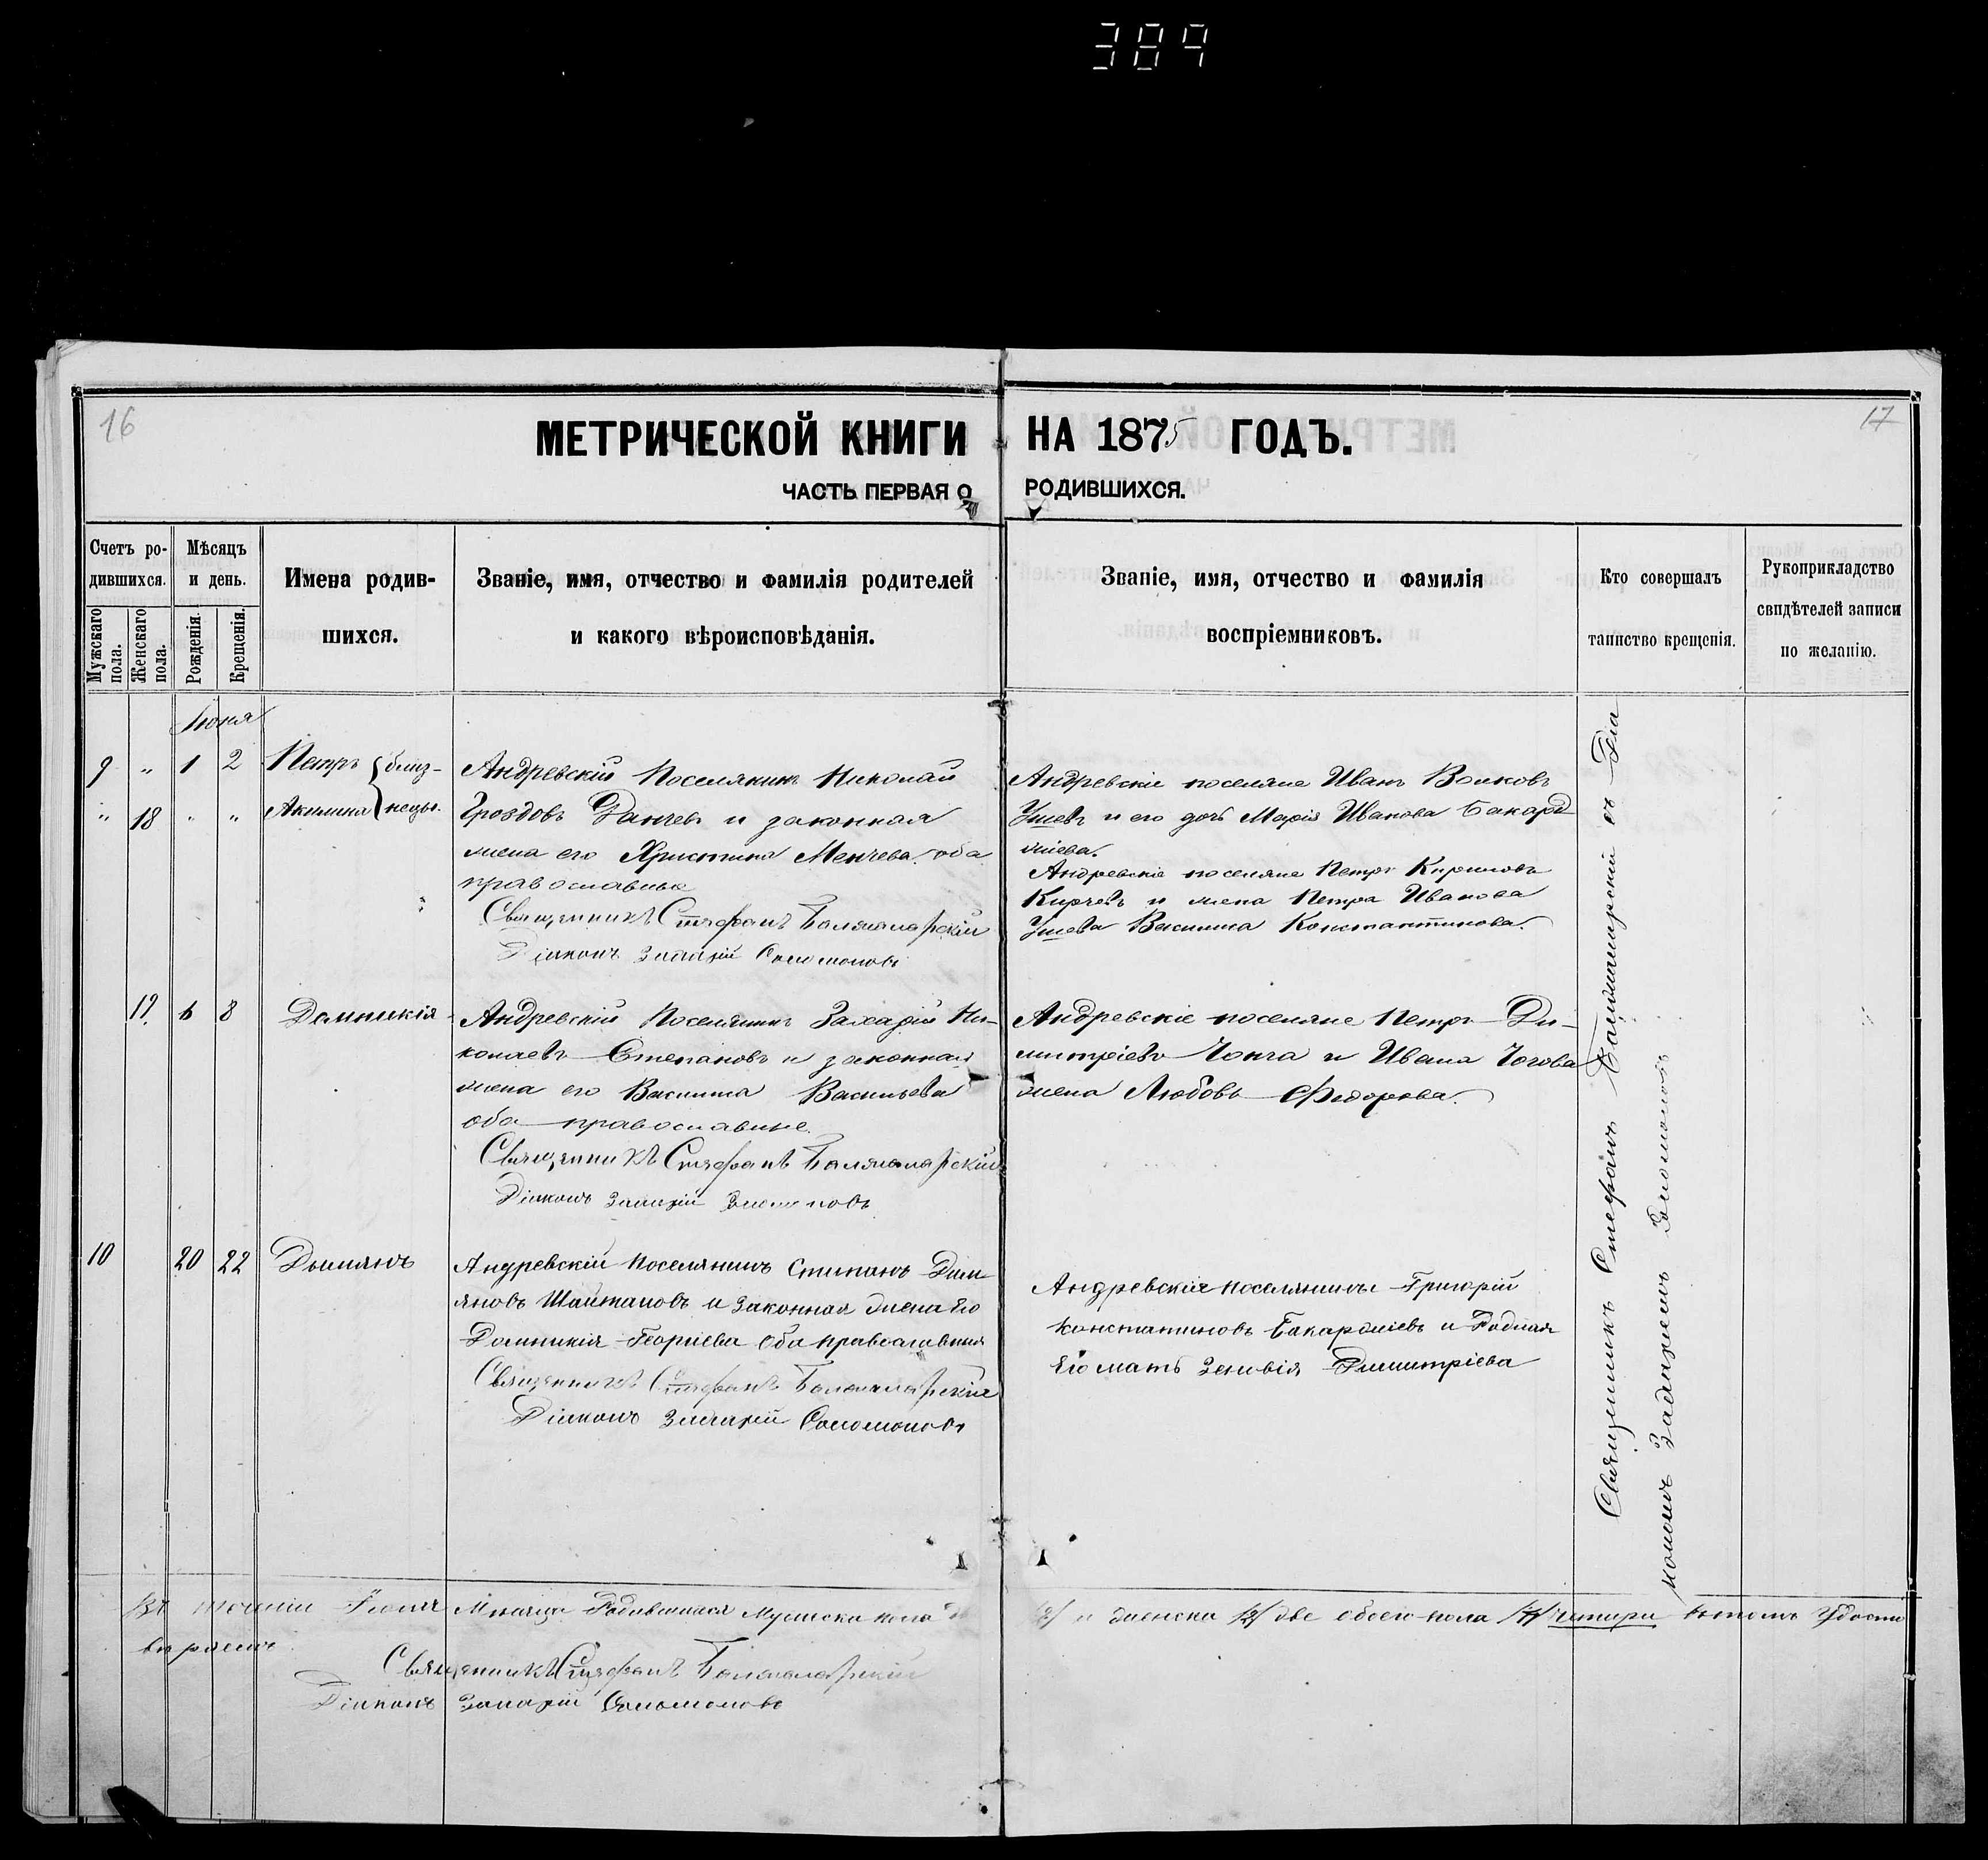 389
16
17
МЕТРИЧЕСКОЙ КНИГИ НА 1875 ГОДЪ.
ЧАСТЬ ПЕРВАЯ О РОДИВШИХСЯ.
Счетъ ро-
дившихся.
Мужскаго пола.
Женскаго пола.
Мѣсяцъ
и день.
Рожденія.
Крещенія.
Имена родив-
шихся.
Званіе, имя, отчество и фамилія родителей
и какого вѣроисповѣданія.
Званіе, имя, отчество и фамилія
воспріемниковъ.
Кто совершалъ
таинство крещенія.
Рукоприкладство
свидѣтелей записи
по желанію.
Июня
9 " 1 2 Петръ близ-
" 18 " " Акилина нецы.
Андревскій Поселянинъ Николай
Гроздовъ Данчевъ и законная
жена его Христина Менчева. оба
православные
Священникъ Стефанъ
Діаконъ Захарій Соломоновъ
Андревскіе поселяне Иванъ Волковъ
Ушевъ и его дочь Марія Иванова Бакард
жіева.
Андревскіе поселяне Петръ Кириловъ
Кирчевъ и жена Петра Иванова
Ушева Василиса Константинова.
19. 6 8 Домникія
Андревскій Поселянинъ Захарій Ни-
колаевъ Степановъ и законная
жена его Василиса Васильева
оба православные.
Священникъ Стефанъ
Діаконъ Захарій Соломоновъ
Андревскіе поселяне Петръ Ди-
митріевъ Чонга и Ивана Чогова
жена Любовь Федорова.
10 20 22 Дымянъ
Андревскій Поселянинъ Стипанъ Дим
яновъ Шайтановъ и Законная Жена Его
Домникія Георгіева Оба православныя
Священникъ Стефанъ
Діаконъ Захарій Соломоновъ
Андревскіе поселянины Григорій
Константиновъ Бакарджіевъ и Родная
Его мать Зеновія Димитріева
Священникъ Стефанъ съ Діа
кономъ Соломоновъ
Въ теченіи Іюня Месяца Родившихся Мужска пола
/2/ и женска /2/ две обоего пола /4/ четыри въ томъ Удосто
веряемъ
Священникъ Стефанъ
Діаконъ Захарій Соломоновъ